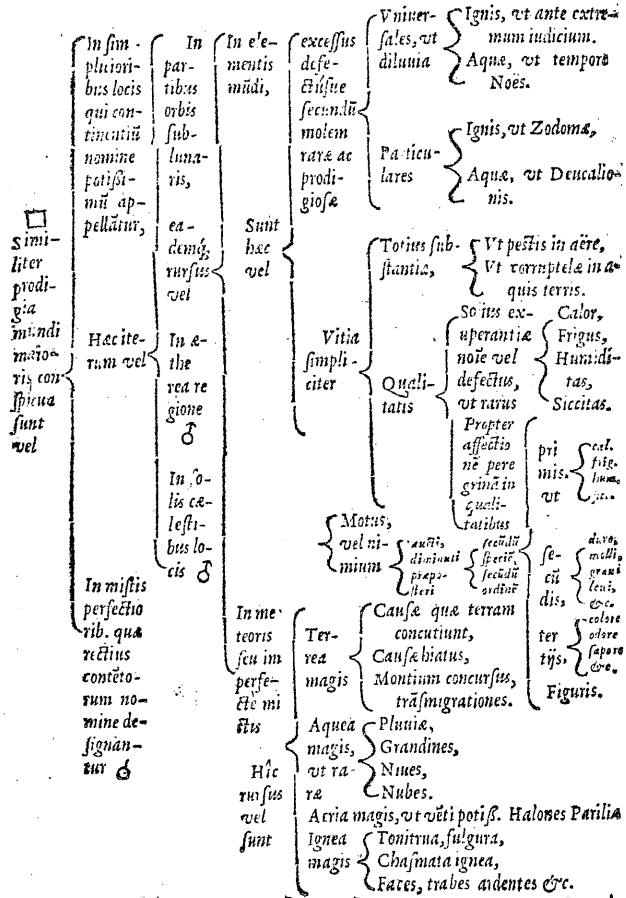 □
Simi-
liter
prodi-
gia
mundi
maio-
ris con
ſpicua
ſunt
vel
In ſim-
pliciori-
bus locis
qui con-
tinentiũ
nomine
potißi-
mũ ap-
pellãtur,
Hæc ite-
rum vel
In miſtis
perfectio
rib. quæ
rectius
contẽto-
rum no-
mine de-
ſignan-
tur ♂
In
par-
tibus
orbis
ſub-
luna-
ris,
ea-
demq́;
rurſus
vel
In æ-
the
rea re
gione
♂
In ſo-
lis cæ-
leſti-
bus lo-
cis ♂
In ele-
mentis
mũdi,
Sunt
hæc
vel
exceſſus
defe-
ctúſue
ſecundũ
molem
raræ ac
prodi-
gioſæ
Vniuer-
ſales, vt
diluuia
Ignis, vt ante extre-
mum iudicium.
Aquæ, vt tempore
Noës.
Particu-
lares
Ignis, vt Zodomæ,
Aquæ, vt Deucalio-
nis.
Vitia
ſimpli-
citer
Totius ſub-
ſtantiæ,
Vt peſtis in aëre,
Vt corruptelæ in a-
quis terris.
Quali-
tatis
Solius ex-
uperantiæ
noĩe vel
defectus,
vt rarus
Calor,
Frigus,
Humidi-
tas,
Siccitas.
Propter
affectio
nẽ pere
grinã in
quali-
tatibus
pri
mis.
vt
cal.
frig.
hum.
ſic.
ſe-
cũ
dis,
duro,
molli,
graui
leui,
&c.
ter
tijs,
colore
odore
ſapore
&c.
Figuris.
Motus,
vel ni-
mium
aucti,
diminuti
præpo-
ſteri
ſecũdũ
ſpeciẽ,
ſecũdũ
ordinẽ
In me-
teoris
ſeu im
perfe-
ctè mi
ſtis
Hîc
rurſus
vel
ſunt
Ter-
rea
magis
Cauſæ quæ terram
concutiunt,
Cauſæ hiatus,
Montium concurſus,
trãſmigrationes.
Aquea
magis,
vt ra-
ræ
Pluuiæ,
Grandines,
Niues,
Nubes.
Aeria magis, vt vẽti potiß. Halones Parilia
Ignea
magis
Tonitrua, fulgura,
Chaſmata ignea,
Faces, trabes ardentes &c.